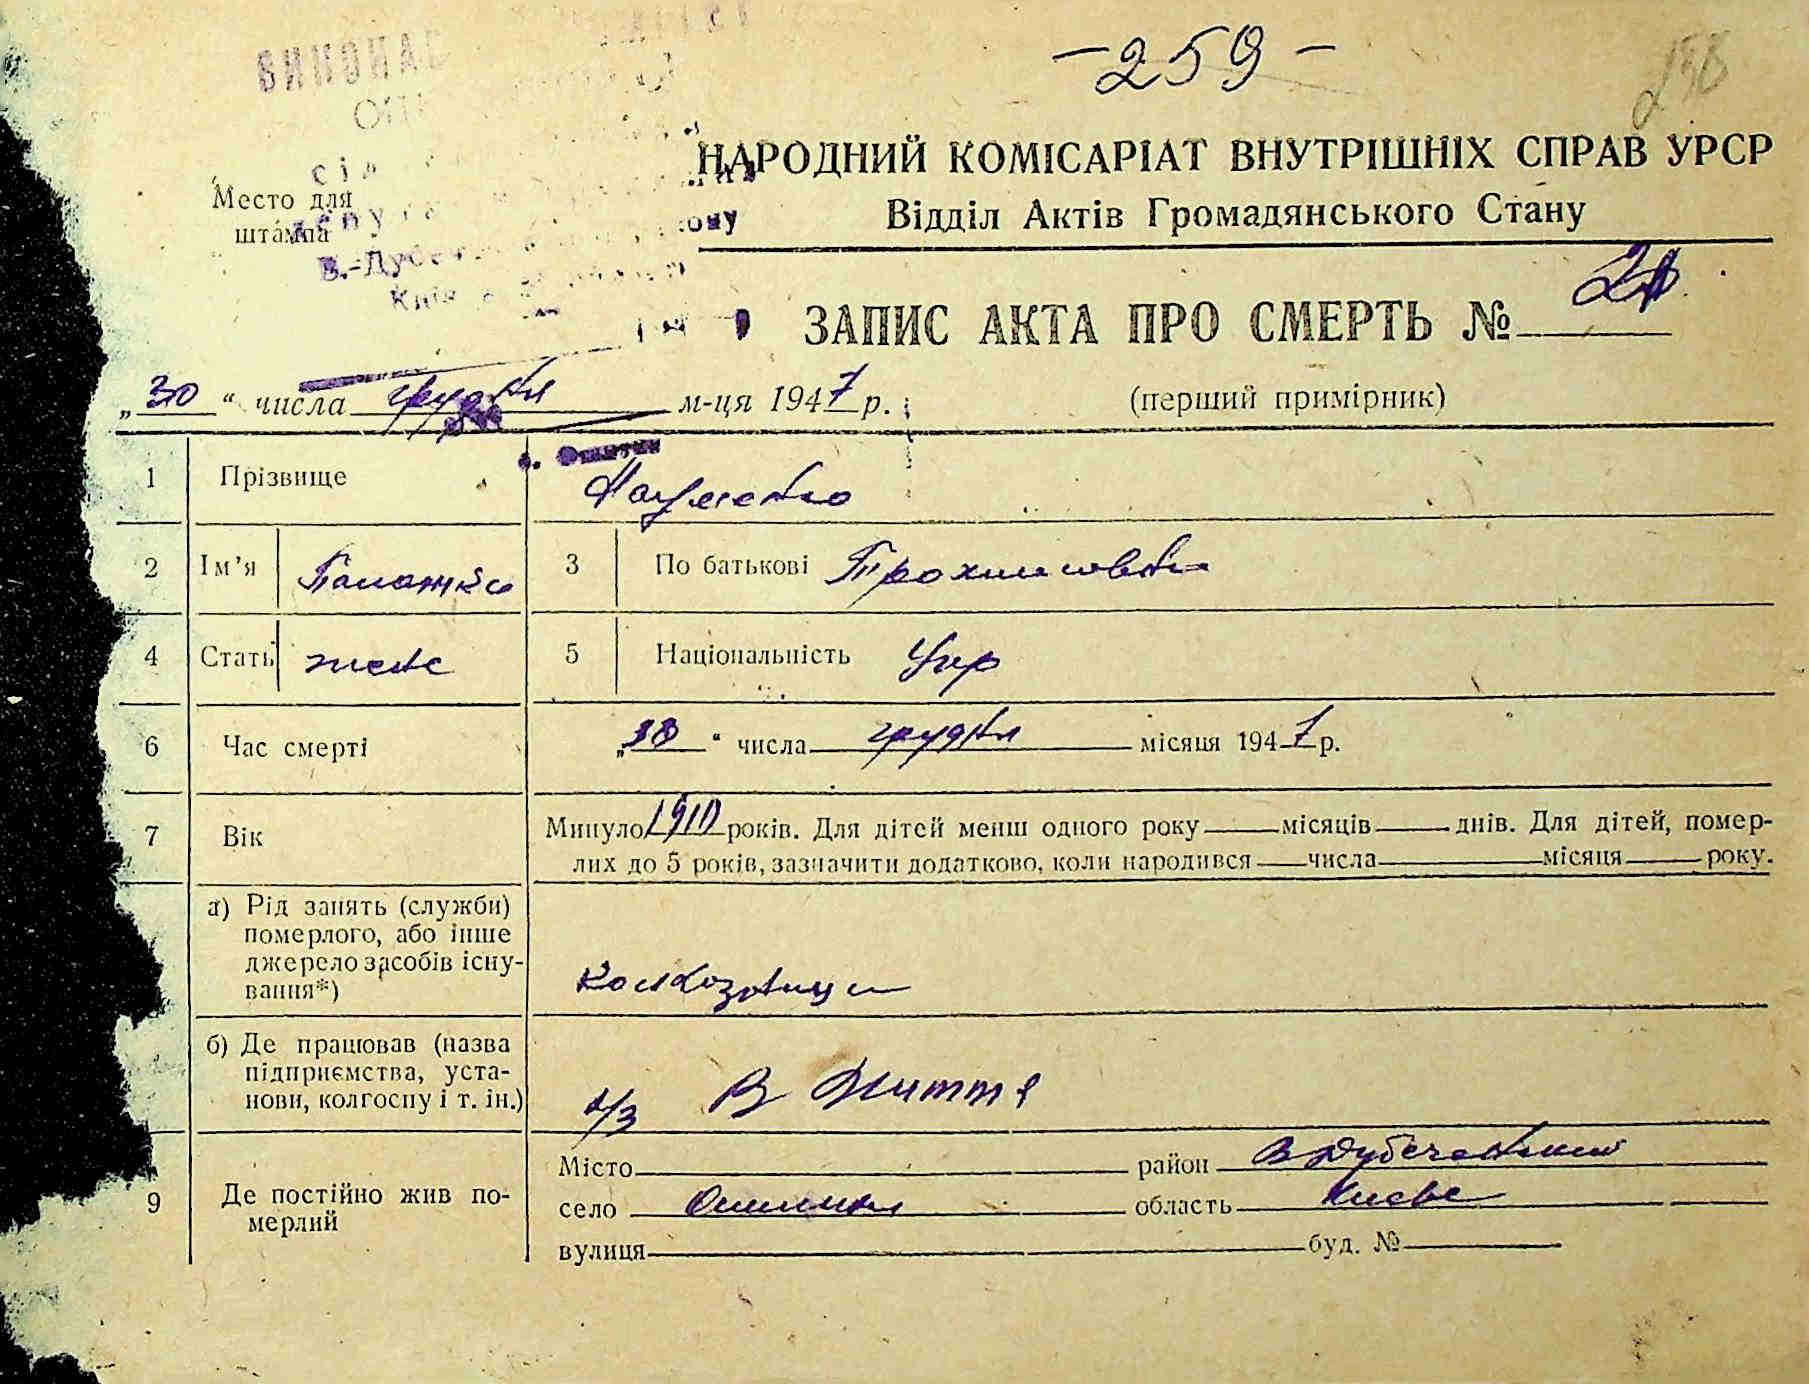 - 259 -
ВИКОНАВ
Место для
штампа
НАРОДНИЙ КОМІСАРІАТ ВНУТРІШНІХ СПРАВ УРСР
Відділ Актів Громадянського Стану
ЗАПИС АКТА ПРО СМЕРТЬ №
„30“ числа грудня м-ця 1947 р. (перший примірник)
1 Прізвище Науменко
2 Ім’я Палажка 3 По батькові
4 Стать жен 5 Національність Укр
6 Час смерті „30“ числа грудня місяця 1947 р.
7 Вік Минуло 1910 років. Для дітей менш одного року місяців днів. Для дітей, помер-
лих до 5 років, зазначити додатково, коли народився числа місяця року.
а) Рід занять (служби)
померлого, або інше
джерело засобів існу-
вання*)
колхозниця
б) Де працював (назва
підприємства, уста-
нови, колгоспу і т. ін.)
к/з В Життя
9 Де постійно жив по-
мерлий
Місто район В Дубечанський
село Ошитки область Києвс
вулиця буд. №